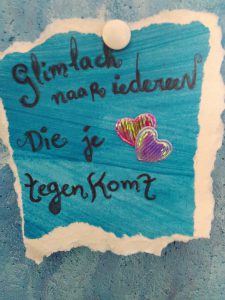 Glimlach
naar iedereen
Die je
tegenkomt